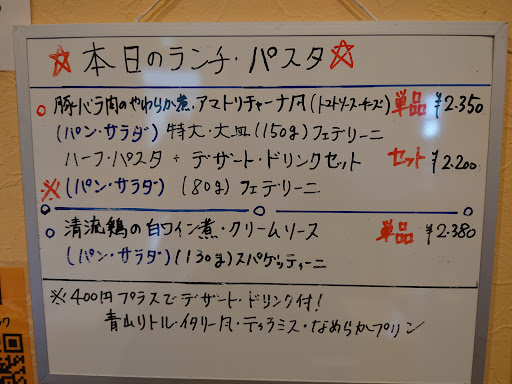 ☆本日のランチ・パスタ☆
○豚バラ肉のやわらか煮・アマトリチャーナ風(トマトソース・チーズ)単品 ¥2.350
(パン・サラダ) 特大・大皿(150g)フェデリーニ
ハーフ・パスタ + デザート・ドリンクセット セット ¥2.200
※(パン・サラダ) (80g)フェデリーニ
○清流鶏の白ワイン煮・クリームソース 単品 ¥2.380
(パン・サラダ)(130g)スパゲッティーニ
※400円プラスでデザート・ドリンク付!
青山リトル・イタリー風・ティラミス・なめらかプリン